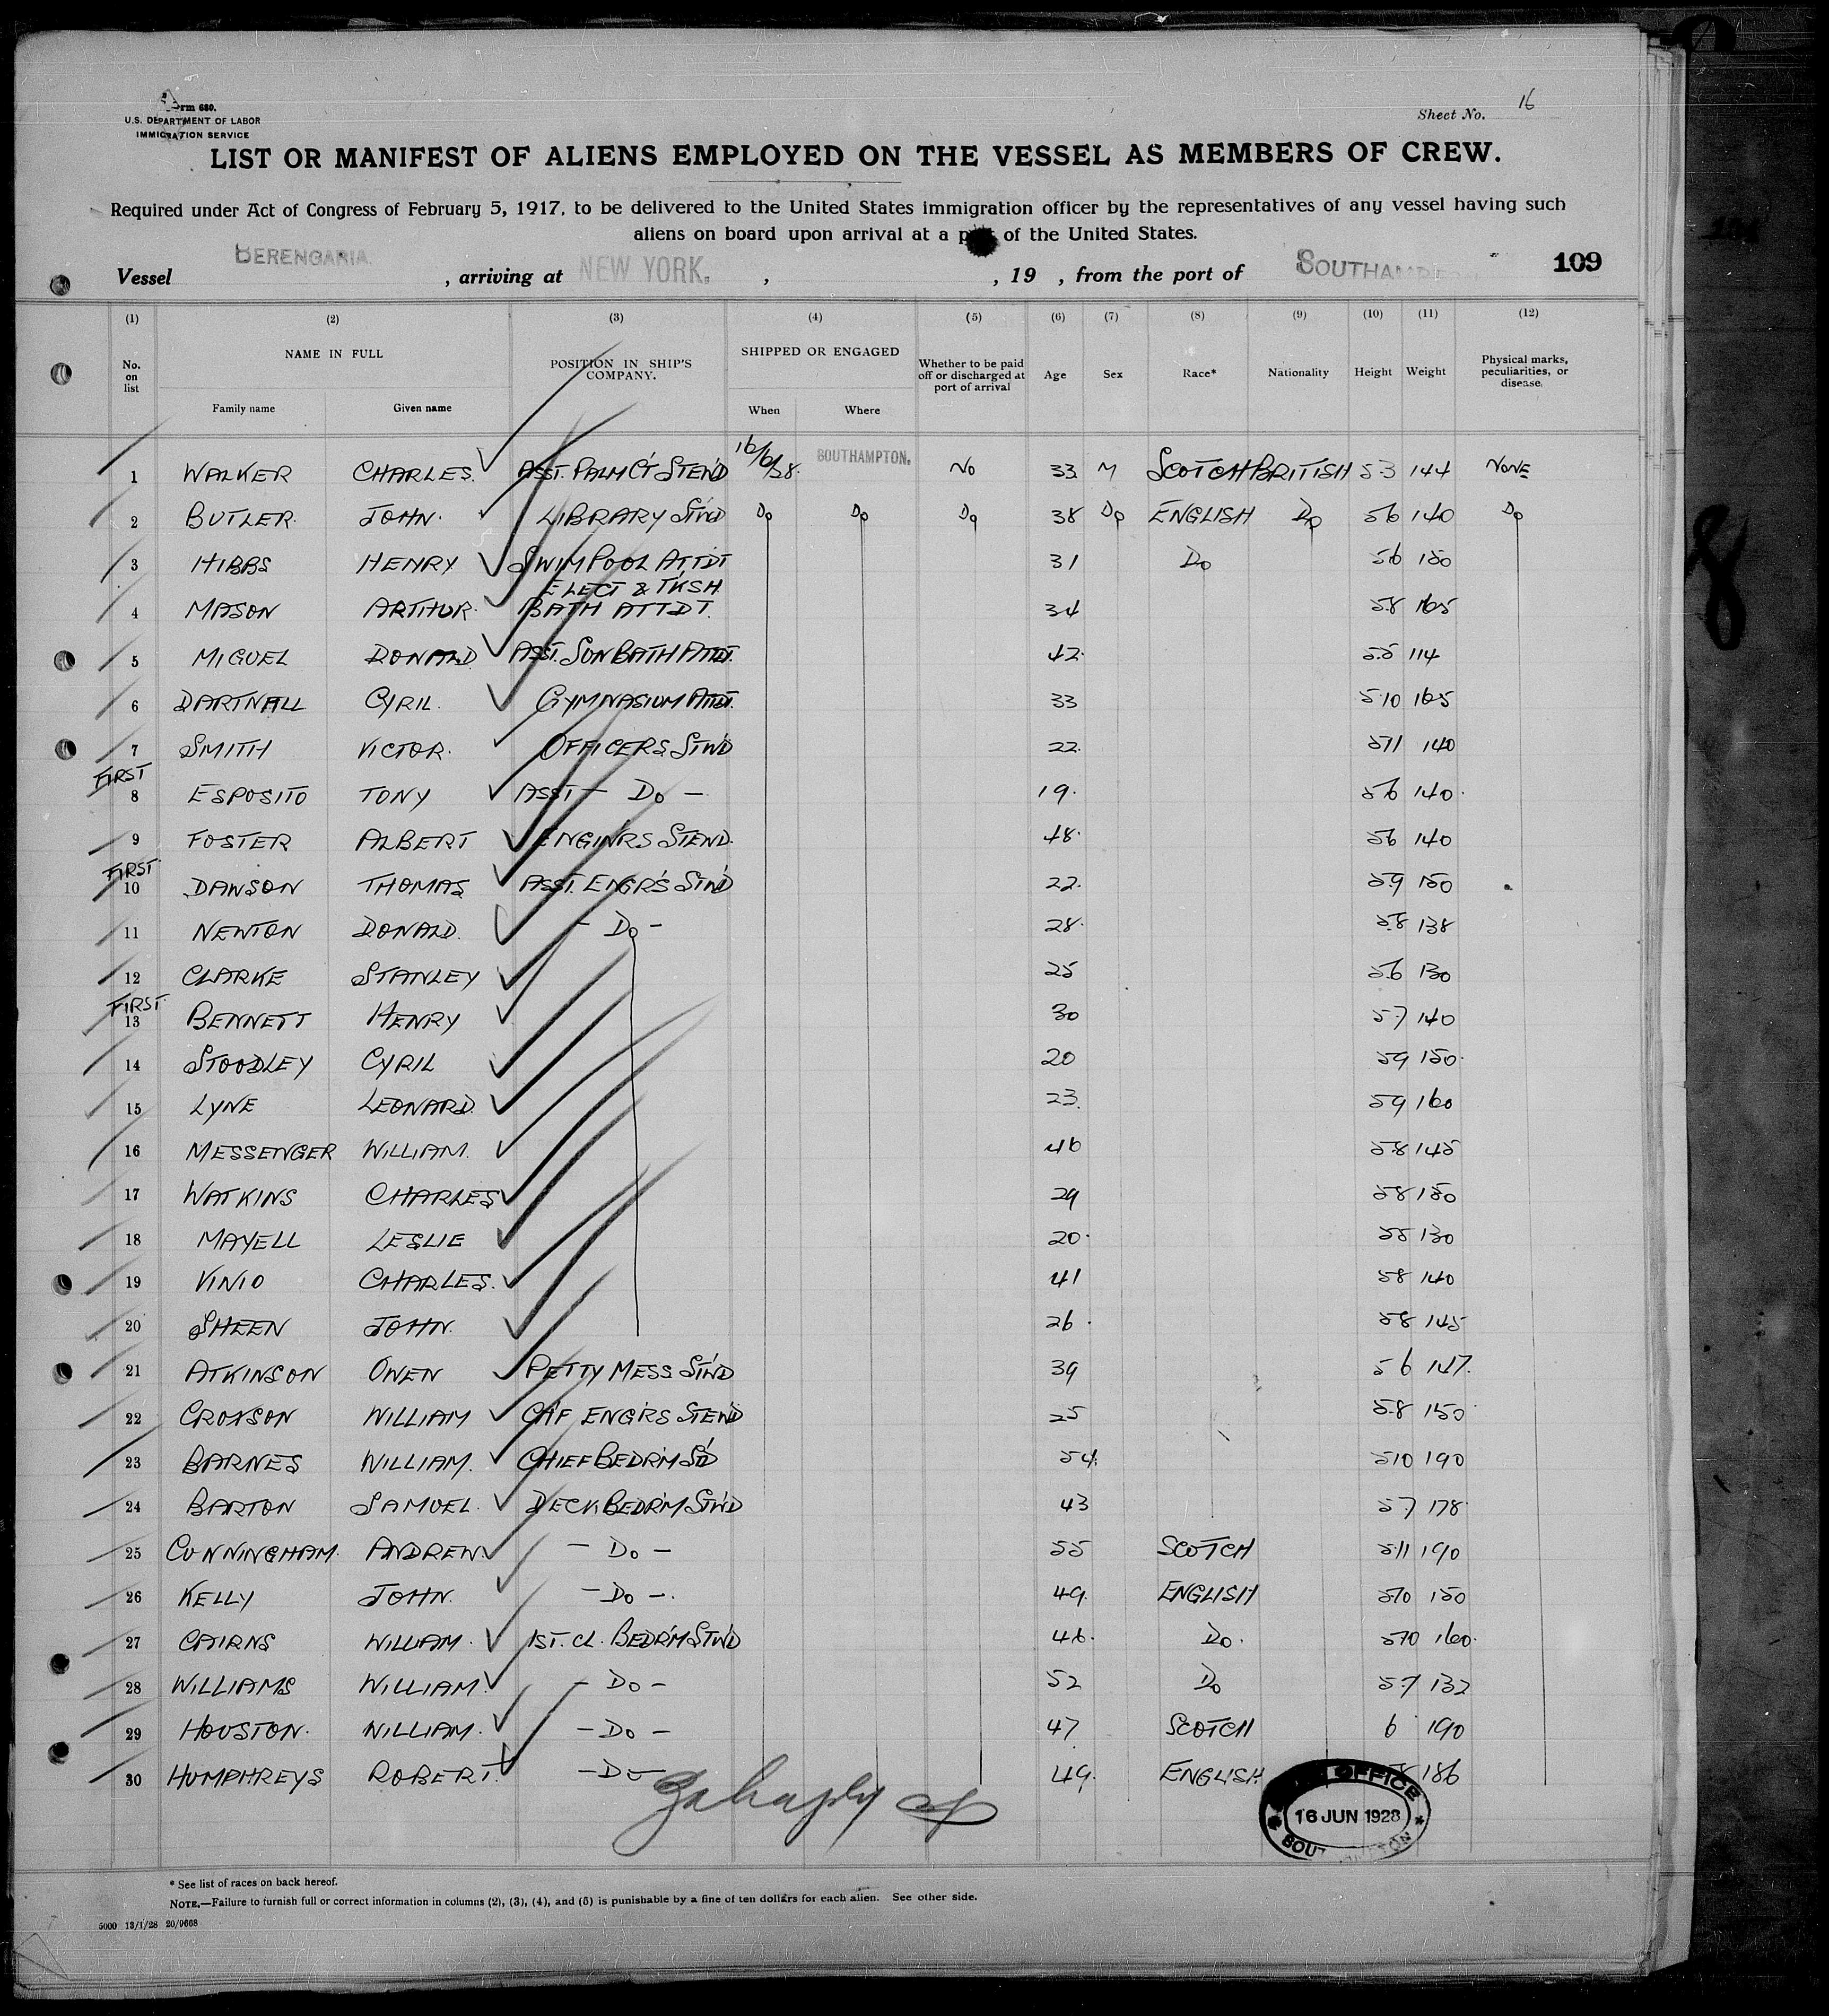 Form 680.
U.S. DEPARTMENT OF LABOR
IMMIGRATION SERVICE
Sheet No. 16
LIST OR MANIFEST OF ALIENS EMPLOYED ON THE VESSEL AS MEMBERS OF CREW.
Required under Act of Congress of February 5, 1917, to be delivered to the United States immigration officer by the representatives of any vessel having such
aliens on board upon arrival at a port of the United States.
Vessel BERENGARIA. , arriving at NEW YORK. , , 19 , from the port of SOUTHAMPTON 109
(1) (2) (3) (4) (5) (6) (7) (8) (9) (10) (11) (12)
No. on list NAME IN FULL Family name Given name POSITION IN SHIP'S COMPANY. SHIPPED OR ENGAGED When Where Whether to be paid off or discharged at port of arrival Age Sex Race* Nationality Height Weight Physical marks, peculiarities, or disease.
1 WALKER CHARLES. ASST. PALM CT STEW'D 16/6/28. SOUTHAMPTON. NO 33 M SCOTCH BRITISH 5-3 144 NONE
2 BUTLER. JOHN. LIBRARY ST'W'D Do Do Do 38 Do ENGLISH Do 56 140 Do
3 HIBBS HENRY SWIM POOL ATTDT 31 Do 5.6 150
ELECT & T'KSH
4 MASON ARTHUR. BATH ATTDT. 34 5.8 165
5 MIGUEL DONALD ASST. SUN BATH ATTDT. 42. 5.5 114
6 DARTNALL CYRIL. GYMNASIUM ATTDT. 33 5.10 165
7 SMITH VICTOR. OFFICERS ST'W'D 22. 511 140
FIRST
8 ESPOSITO TONY ASST - Do - 19. 56 140.
9 FOSTER ALBERT ENGIN'RS STEW'D. 48. 56 140
FIRST
10 DAWSON THOMAS ASST. ENGR'S ST'W'D 22. 5.9 150
11 NEWTON DONALD. - Do - 28. 5.8 138
12 CLARKE STANLEY 25 5.6 130
FIRST
13 BENNETT HENRY 30 5.7 140
14 STOODLEY CYRIL 20 59 150.
15 LYNE LEONARD. 23. 59 160
16 MESSENGER WILLIAM. 46 5.8 145
17 WATKINS CHARLES 29 58 150
18 MAYELL LESLIE 20. 55 130
19 VINIO CHARLES. 41 58 140
20 SHEEN JOHN. 26. 58 145
21 ATKINSON OWEN PETTY MESS ST'W'D 39 56 147.
22 CROXSON WILLIAM CH'F ENG'RS STEW'D 25 5.8 150
23 BARNES WILLIAM. CHIEF BEDR'M ST'D 54. 510 190
24 BARTON SAMUEL. DECK BEDR'M ST'W'D 43 5.7 178
25 CUNNINGHAM. ANDREW - Do - 55 SCOTCH 5.11 190
26 KELLY JOHN. - Do -. 49. ENGLISH 510 150
27 CAIRNS WILLIAM. 1ST. CL. BEDR'M ST'W'D 46. Do. 510 160.
28 WILLIAMS WILLIAM. - Do - 52 Do 5.7 132
29 HOUSTON. WILLIAM. - Do - 47 SCOTCH 6 190
30 HUMPHREYS ROBERT. - Do - 49. ENGLISH 186
OFFICE
16 JUN 1928
SOUTHAMPTON
* See list of races on back hereof.
NOTE.—Failure to furnish full or correct information in columns (2), (3), (4), and (5) is punishable by a fine of ten dollars for each alien. See other side.
5000 13/1/28 20/9668
8